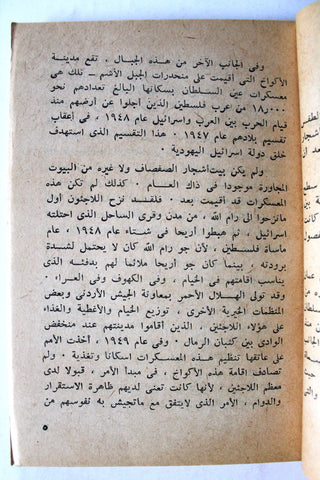 وفى الجانب الآخر من هذه الجبال . تقع مدينة
الأكواخ التى أقيمت على منحدرات الجبل الأشم ــ تلك هى
معسكرات عين السلطان بسكانها البالغ تعدادهم نحو
١٨٠٠٠ من عرب فلسطين الذين أجلوا عن أرضهم منذ
قيام الحرب بين العرب وإسرائيل عام ١٩٤٨ ، فى أعقاب
تقسيم بلادهم عام ١٩٤٧ . هذا التقسيم الذى استهدف
خلق دولة اسرائيل اليهودية .
ولم يكن بيت أشجار الصفصاف ولا غيره من البيوت
المجاورة موجودا فى ذاك العام . كذلك لم تكن هذه
المعسكرات قد أقيمت بعد . فلقد نزح اللاجئون أول
مانزحوا الى رام الله ــ من مدن وقرى الساحل الذى احتلته
اسرائيل ، ثم هبطوا أريحا فى شتاء عام ١٩٤٨ ، عام
مأساة فلسطين ، لأن جو رام الله كان لا يحتمل لشدة
برودته ، بينما كان جو أريحا ملائما لهم بدفئه الذى
يناسب اقامتهم فى الخيام ، وفى الكهوف وفى العراء .
وقد تولى الهلال الأحمر بمعاونة الجيش الأردنى وبعض
المنظمات الخيرية الأخرى ، توزيع الخيام والأغطية والغذاء
على هؤلاء اللاجئين الذين اقاموا مدينتهم عند منخفض
الوادى بين كثبان الرمال . وفى عام ١٩٤٩ ، أخذت الأمم
على عاتقها تنظيم هذه المعسكرات اسكانا وتغذية . ولم
تصادف اقامة هذه الأكواخ ، فى مبدأ الأمر ، قبولا لدى
معظم اللاجئين ، لأنها كانت تعنى لديهم ظاهرة الاستقرار
والدوام ، الأمر الذى لايتفق مع ماتجيش به نفوسهم من
٥